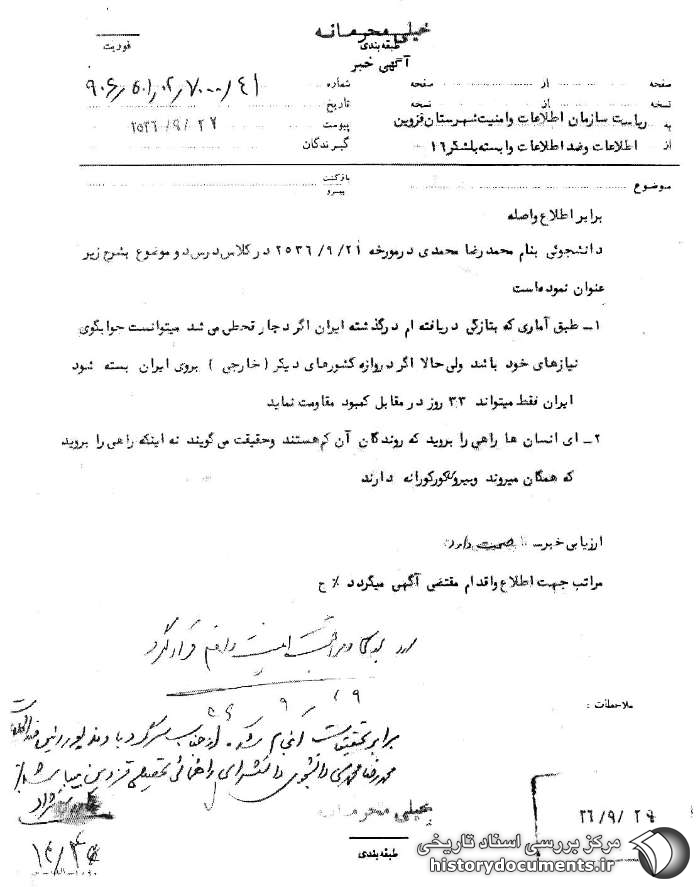 خیلی محرمانه
طبقه‌بندی
فوریت
آگهی خبر
صفحه از صفحه شماره ۹۰۶٫۵۰۱٫۰۲٫۷۰۰۰٫۴۱
نسخه از نسخه تاریخ
به ریاست سازمان اطلاعات وامنیت شهرستان قزوین پیوست ۲۵۳۶/۹/۲۷
از اطلاعات وضد اطلاعات وابسته بلشگر ۱۶ گیرندگان
موضوع بازگشت
پیرو
برابر اطلاع واصله
دانشجوئی بنام محمدرضا محمدی درمورخه ۲۵۳۶/۹/۲۱ در کلاس درس دو موضوع بشرح زیر
عنوان نموده‌است
۱ــ طبق آماری که بتازگی دریافته ام درگذشته ایران اگر دچار قحطی می شد میتوانست جوابگوی
نیازهای خود باشد ولی حالا اگر دروازه کشورهای دیگر (خارجی ) بروی ایران بسته شود
ایران فقط میتواند ۳۳ روز در مقابل کمبود مقاومت نماید
۲ــ ای انسان ها راهی را بروید که روندگان آن کم هستند وحقیقت می گویند نه اینکه راهی را بروید
که همگان میروند وپیروی کورکورانه دارند
ارزیابی خبر ــ صحت دارد
مراتب جهت اطلاع واقدام مقتضی آگهی میگردد ٪ ح
قرار گیرد
۵۶/۹/۲۹
ملاحظات :
برابر تحقیقات انجام شده
محمدرضا محمدی دانشجوی دانشسرای راهنمائی تحصیلی قزوین میباشد
خیلی محرمانه
طبقه‌بندی
۳۶/۹/۲۹
مرکز بررسی اسناد تاریخی
historydocuments.ir